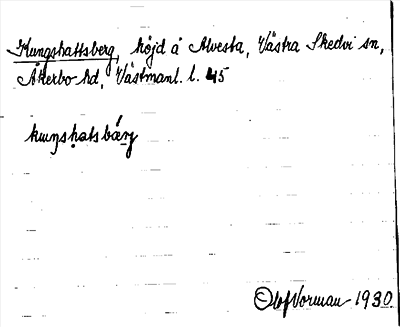 Kungshattsberg, höjd å Alvesta, Västra Skedvi sn,
Åkerbo hd, Västmanl. l. 45
kuŋshatsbærj
Olof Vorman 1930